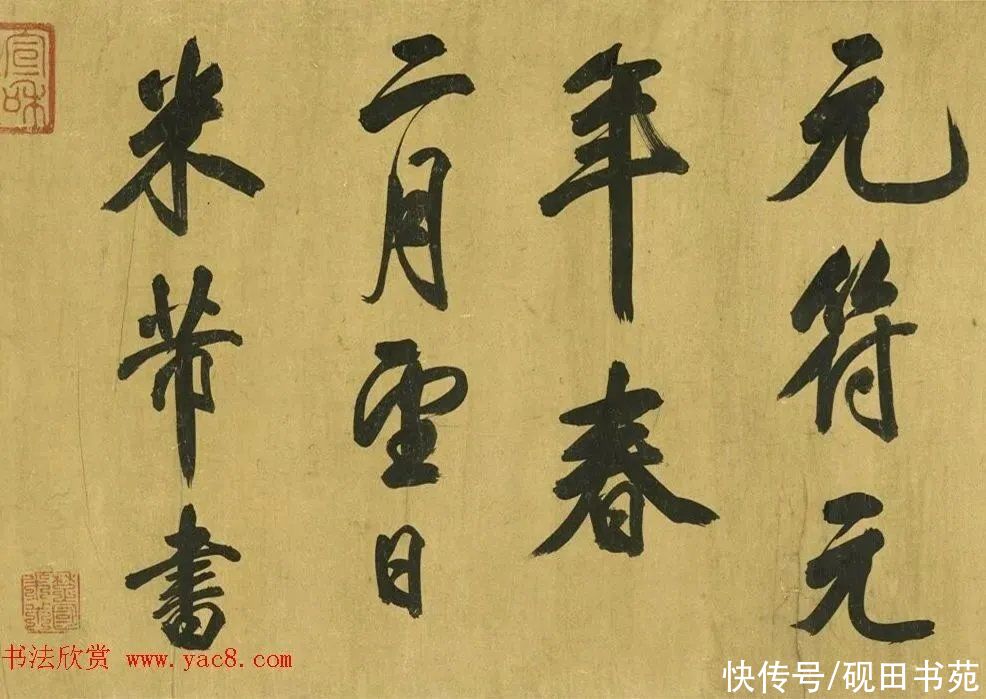 元符元
年春
二月望日
米芾書
宣和
书法欣赏 www.yac8.com
快传号/砚田书苑